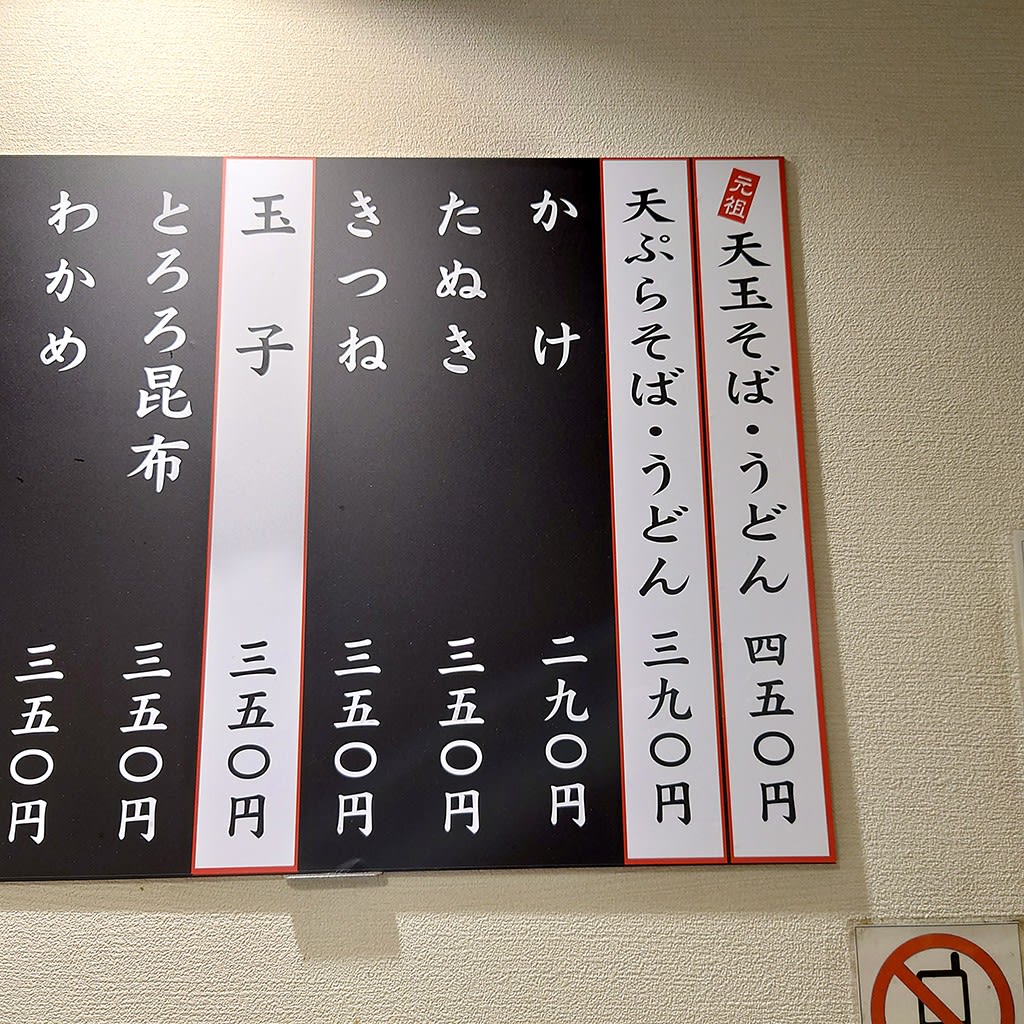 元祖
天玉そば・うどん 四五〇円
天ぷらそば・うどん 三九〇円
かけ 二九〇円
たぬき 三五〇円
きつね 三五〇円
玉子 三五〇円
とろろ昆布 三五〇円
わかめ 三五〇円